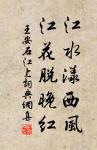 江水漾西風
江花脫晚紅
王安石江上詞典網集